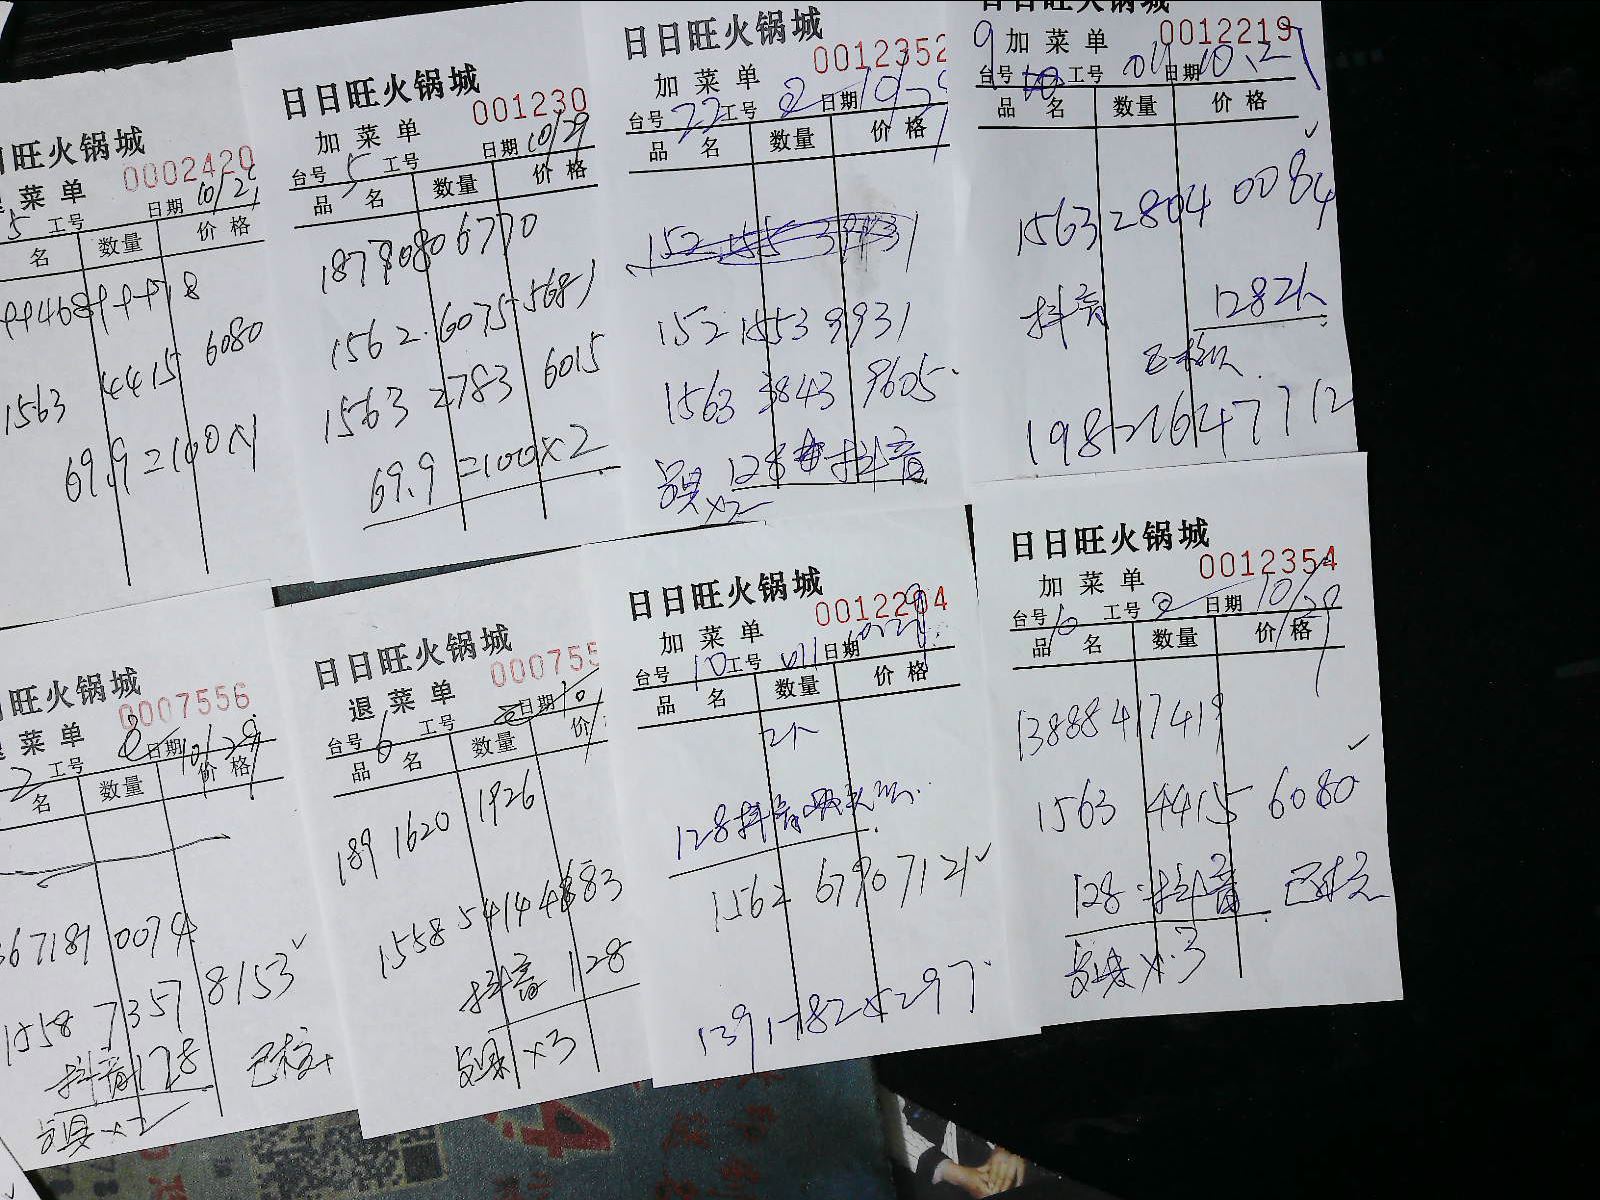 日旺火锅城
0002420
菜单
5 工号 日期 10/2
名 数量 价格
1563 4415 6080
69.9=100×1
日日旺火锅城
001230
加菜单
台号 5 工号 日期 10/29
品名 数量 价格
1562 6075 5681
1563 2783 6015
69.9=100×2
日日旺火锅城
0012352
加菜单
台号 22 工号 2 日期 10/2
品名 数量 价格
152 1553 9931
1563 3843 9605
128 抖音
×2
日日旺火锅城
0012219
加菜单
9
台号 工号 011 日期 10.2
品名 数量 价格
1563 2804 0084
抖音 128 2个
已核
198 2164 7712
日旺火锅城
0007556
菜单
2 工号 2 日期 10/29
名 数量 价格
67181 0074
1558 7357 8153
抖音128 已核
×2
日日旺火锅城
000755
退菜单
台号 6 工号 日期 10/
品名 数量 价
189 1620 1926
1558 5414 4883
抖音 128
×3
日日旺火锅城
0012204
加菜单
台号 10 工号 011 日期
品名 数量 价格
2个
128抖音
1562 6790 7121
139 1782 5297
日日旺火锅城
0012354
加菜单
台号 6 工号 2 日期 10/29
品名 数量 价格
13888417419
1563 4415 6080
128 抖音 已核
×3